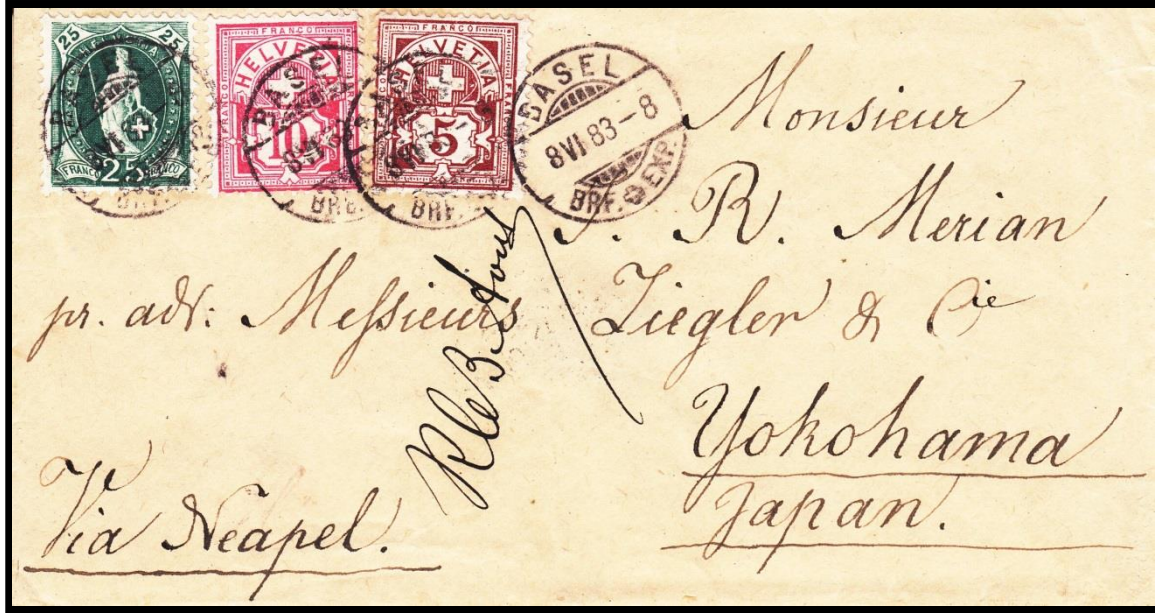 25 25
FRANCO 25 FRANCO
FRANCO
HELVETIA
10
FRANCO
HELVETIA
5
BASEL
8 VI 83 - 8
BRF. EXP.
Monsieur
J. R. Merian
pr. adr: Messieurs Ziegler & Cie
Yokohama
Japan.
Via Neapel.